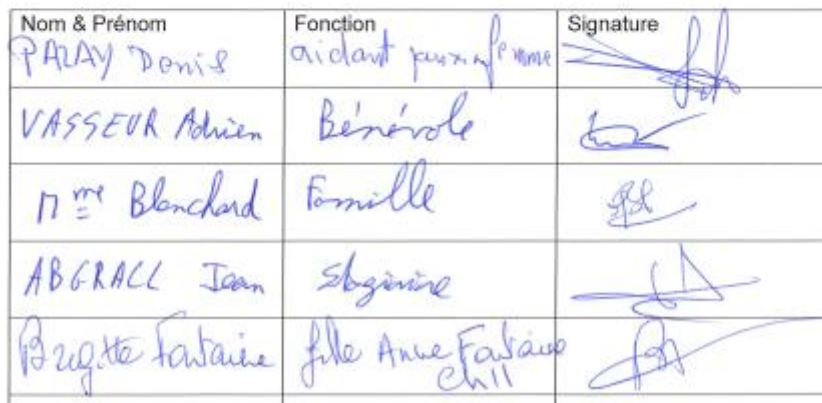 Nom & Prénom Fonction Signature
PALAY Denis aidant pour sa femme
VASSEUR Adrien Bénévole
Mme Blanchard Famille
ABGRALL Jean
Brigitte Fontaine fille Anne Fontaine
Ch11